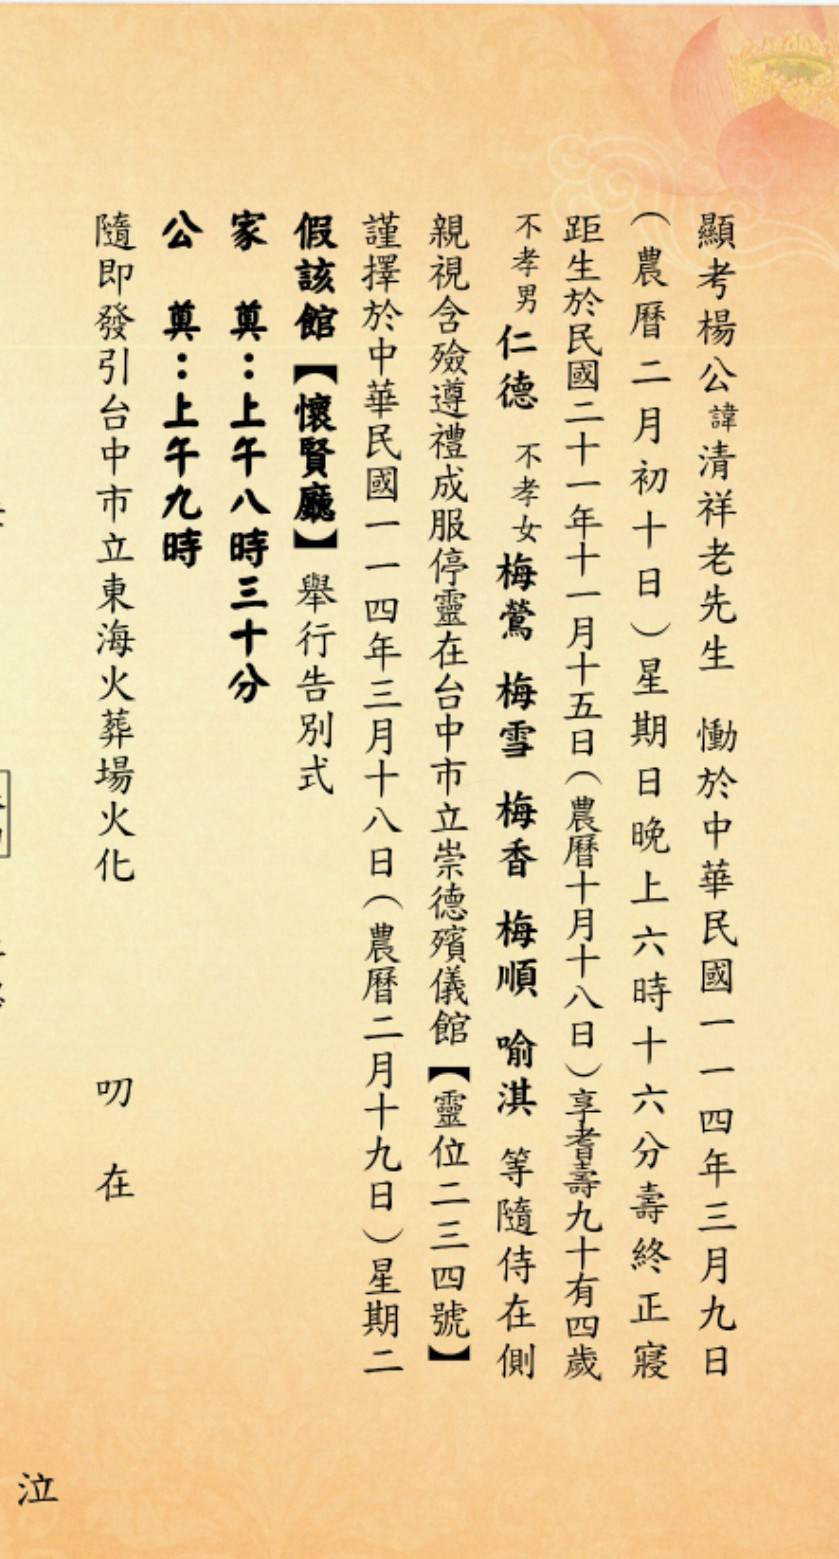 顯考楊公諱清祥老先生　慟於中華民國一一四年三月九日
（農曆二月初十日）星期日晚上六時十六分壽終正寢
距生於民國二十一年十一月十五日（農曆十月十八日）享耆壽九十有四歲
不孝男仁德　不孝女梅鶯　梅雪　梅香　梅順　喻淇　等隨侍在側
親視含殮遵禮成服停靈在台中市立崇德殯儀館【靈位二三四號】
謹擇於中華民國一一四年三月十八日（農曆二月十九日）星期二
假該館【懷賢廳】舉行告別式
家　奠：上午八時三十分
公　奠：上午九時
隨即發引台中市立東海火葬場火化　叨　在
泣